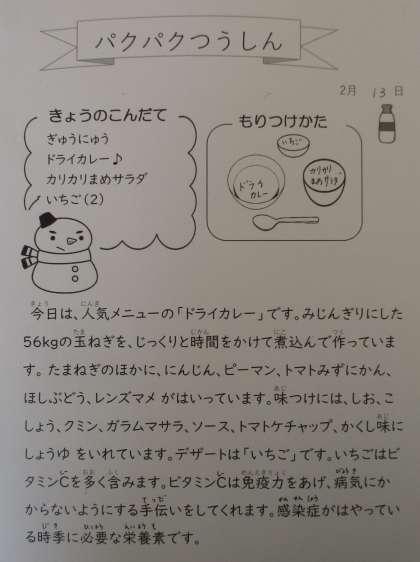 パクパクつうしん
2月 13 日
きょうのこんだて
ぎゅうにゅう
ドライカレー♪
カリカリまめサラダ
いちご(2)
もりつけかた
いちご
ドライ
カレー
カリカリ
まめサラダ
今日は、人気メニューの「ドライカレー」です。みじんぎりにした
56kgの玉ねぎを、じっくりと時間をかけて煮込んで作っていま
す。たまねぎのほかに、にんじん、ピーマン、トマトみずにかん、
ほしぶどう、レンズマメ がはいっています。味つけには、しお、こ
しょう、クミン、ガラムマサラ、ソース、トマトケチャップ、かくし味に
しょうゆ をいれています。デザートは「いちご」です。いちごはビ
タミンCを多く含みます。ビタミンCは免疫力をあげ、病気にか
からないようにする手伝いをしてくれます。感染症がはやってい
る時季に必要な栄養素です。